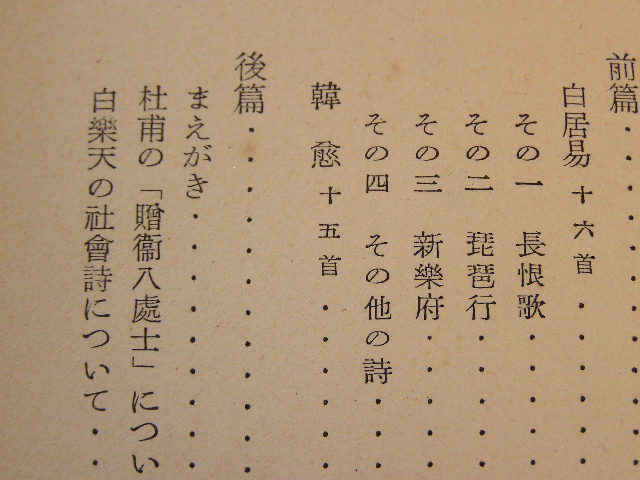 前篇・・・・・・・
白居易 十六首・・・・
その一 長恨歌・・・・
その二 琵琶行・・・・
その三 新樂府・・・・
その四 その他の詩・・・
韓愈 十五首・・・・・
後篇・・・・・・・・・・・
まえがき・・・・・・・・
杜甫の「贈衞八處士」につい
白樂天の社會詩について・・